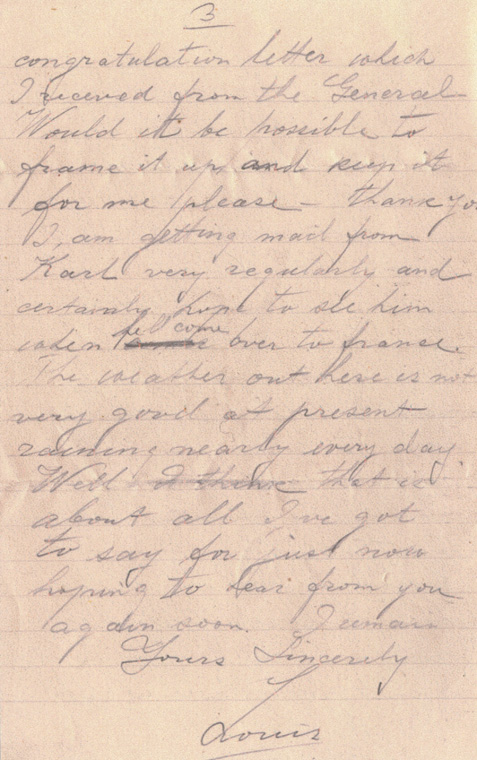 3
congratulation letter which
I receved from the General
Would it be possible to
frame it up, and keep it
for me please - thank you
I, am getting mail from
Karl very regularly and
certainly hope to see him
when he come over to france.
The weather out here is not
very good at present
raining nearly every day
Well I think that is
about all I've got
to say for just now
hoping to hear from you
again soon. I remain
Yours Sincerely
Louis